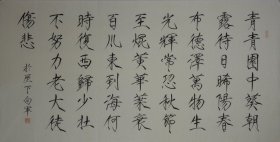 青青園中葵朝
露待日晞陽春
布德澤萬物生
光輝常恐秋節
至焜黄華葉衰
百川東到海何
時復西歸少壮
不努力老大徒
傷悲